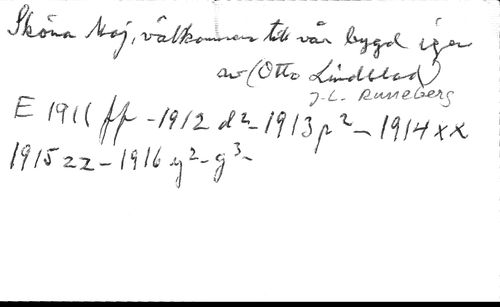 Sköna Maj, välkommen till vår bygd igen
av (Otto Lindblad)
J.L. Runeberg
E 1911 ff - 1912 d² - 1913 p² - 1914 xx
1915 zz - 1916 y² - g³ -